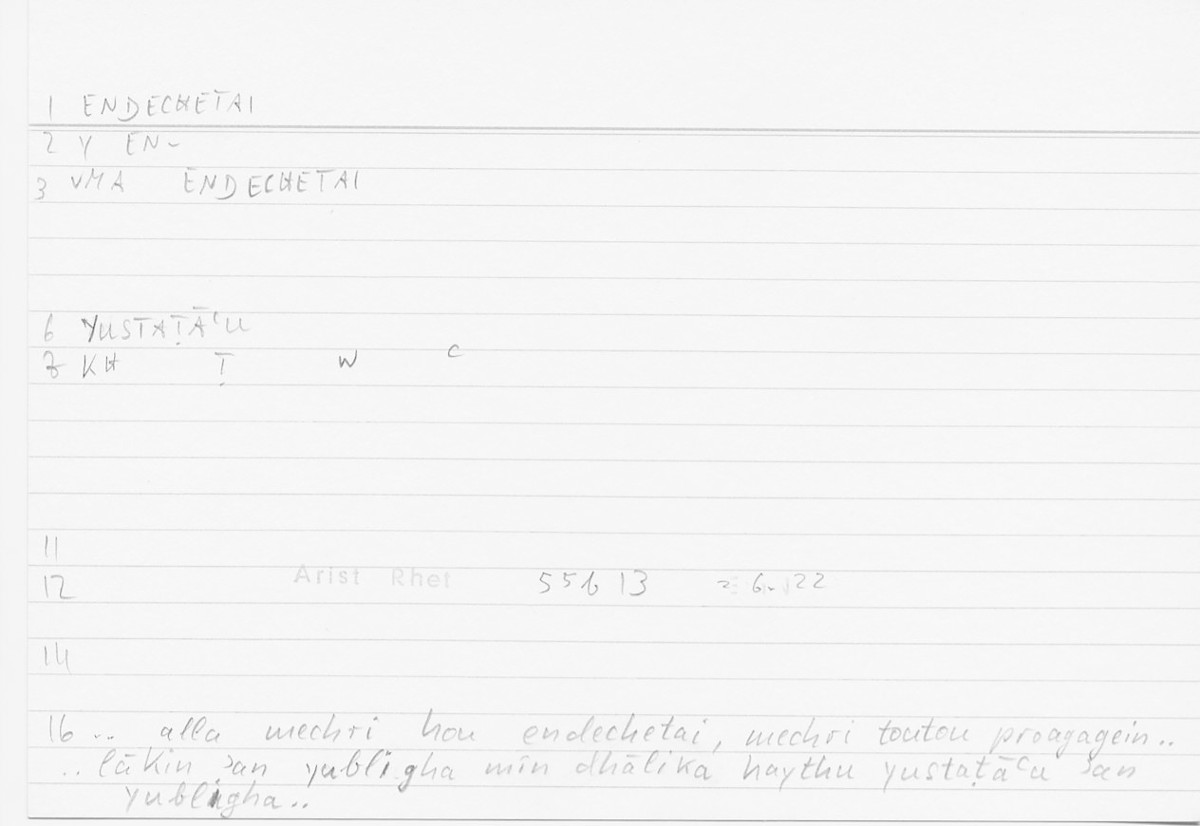 1 ENDECHETAI
2 Y EN~
3 VMA ENDECHETAI
6 YUSTAṬĀʿU
7 KH Ṭ W ʿ
11
12 Arist Rhet 55b 13 = 6. 22
14
16 .. alla mechri hou endechetai, mechri toutou proagagein..
.. lākin ʾan yubligha min dhālika ḥaythu yustaṭāʿu ʾan
yubligha..